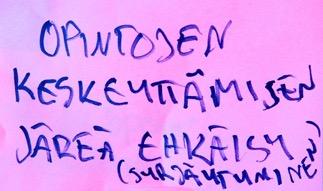 OPINTOJEN
KESKEYTTÄMISEN
JÄREÄ EHKÄISY
(SYRJÄYTYMINEN)